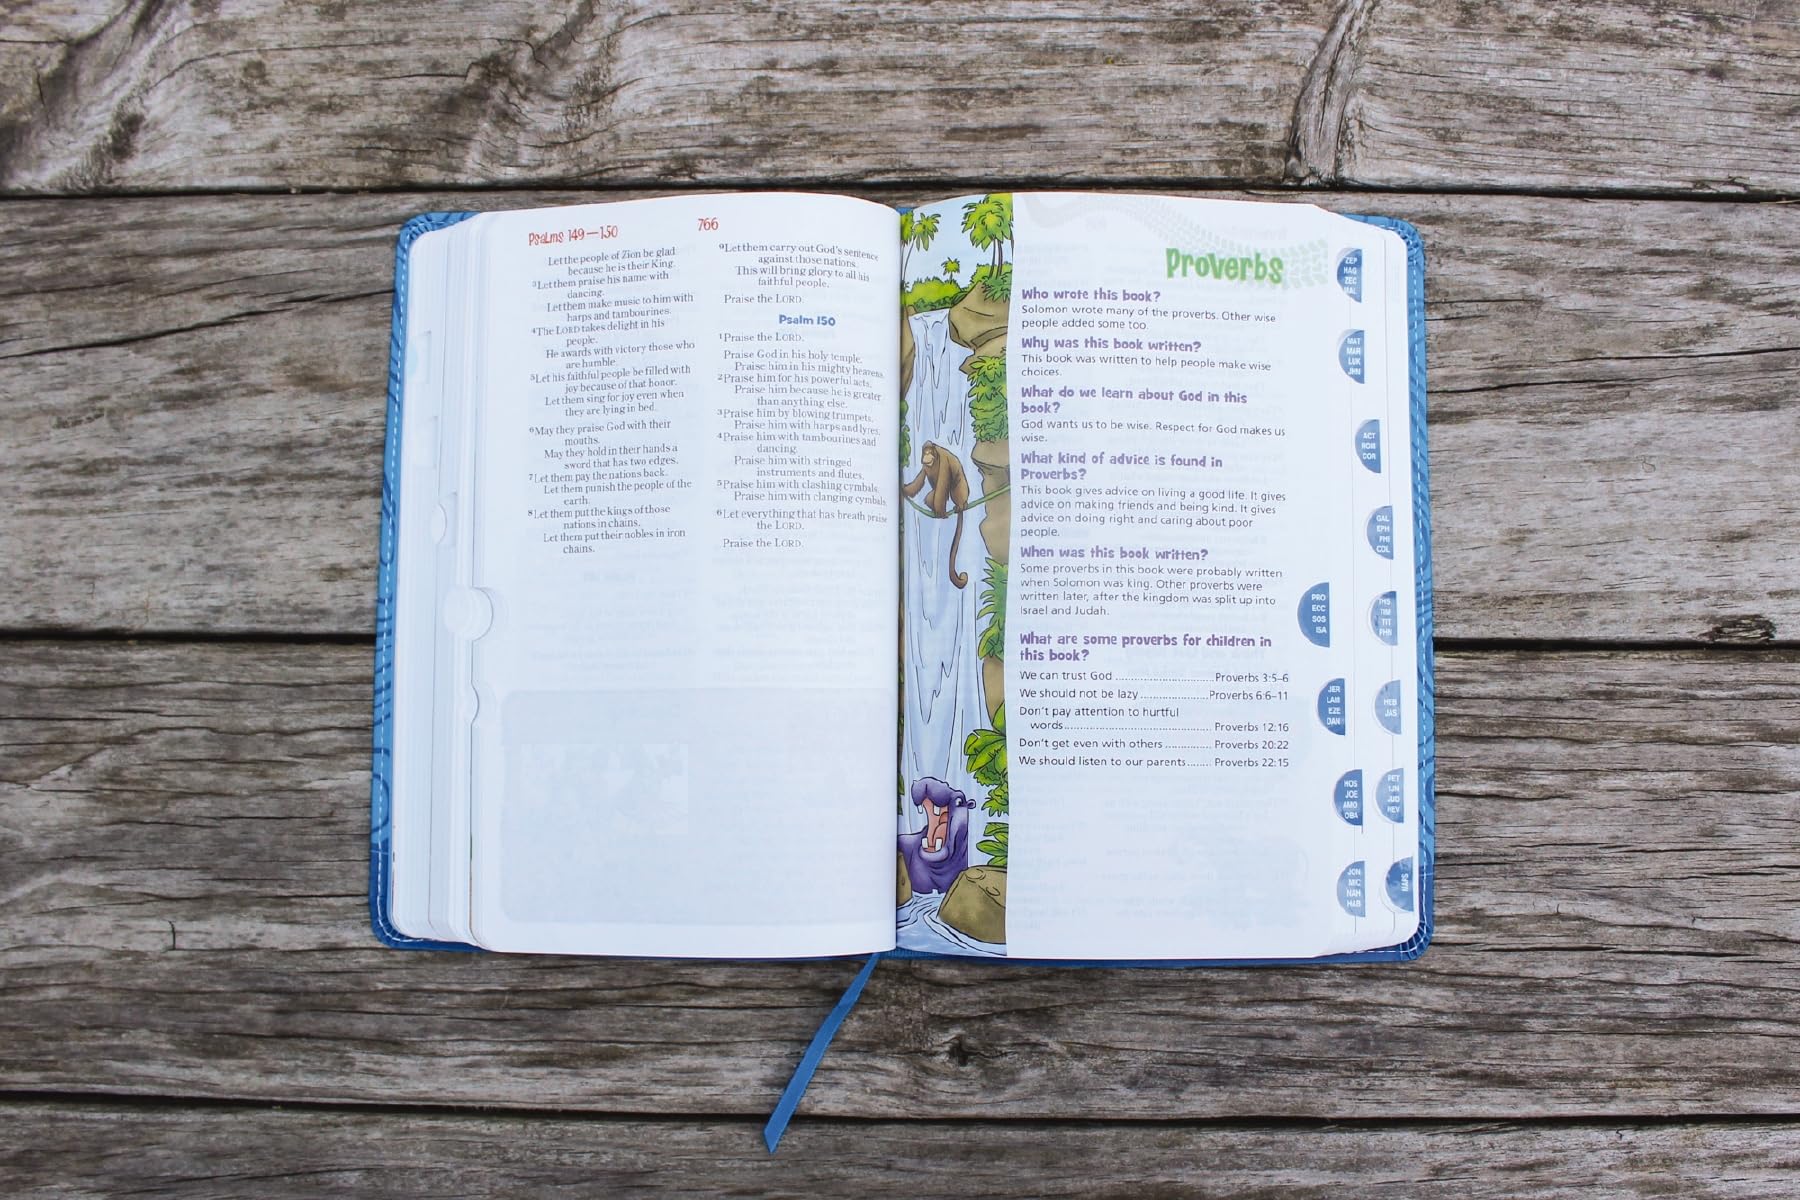 Psalms 149—150
766
Let the people of Zion be glad
because he is their King.
3Let them praise his name with
dancing.
Let them make music to him with
harps and tambourines.
4The LORD takes delight in his
people.
He awards with victory those who
are humble.
5Let his faithful people be filled with
joy because of that honor.
Let them sing for joy even when
they are lying in bed.
6May they praise God with their
mouths.
May they hold in their hands a
sword that has two edges.
7Let them pay the nations back.
Let them punish the people of the
earth.
8Let them put the kings of those
nations in chains.
Let them put their nobles in iron
chains.
9Let them carry out God's sentence
against those nations.
This will bring glory to all his
faithful people.
Praise the LORD.
Psalm 150
1Praise the LORD.
Praise God in his holy temple.
Praise him in his mighty heavens.
2Praise him for his powerful acts.
Praise him because he is greater
than anything else.
3Praise him by blowing trumpets.
Praise him with harps and lyres.
4Praise him with tambourines and
dancing.
Praise him with stringed
instruments and flutes.
5Praise him with clashing cymbals.
Praise him with clanging cymbals.
6Let everything that has breath praise
the LORD.
Praise the LORD.
Proverbs
Who wrote this book?
Solomon wrote many of the proverbs. Other wise
people added some too.
Why was this book written?
This book was written to help people make wise
choices.
What do we learn about God in this
book?
God wants us to be wise. Respect for God makes us
wise.
What kind of advice is found in
Proverbs?
This book gives advice on living a good life. It gives
advice on making friends and being kind. It gives
advice on doing right and caring about poor
people.
When was this book written?
Some proverbs in this book were probably written
when Solomon was king. Other proverbs were
written later, after the kingdom was split up into
Israel and Judah.
What are some proverbs for children in
this book?
We can trust God .............................. Proverbs 3:5–6
We should not be lazy .................... Proverbs 6:6–11
Don't pay attention to hurtful
words............................................ Proverbs 12:16
Don't get even with others .............. Proverbs 20:22
We should listen to our parents........ Proverbs 22:15
PRO
ECC
SOS
ISA
JER
LAM
EZE
DAN
HOS
JOE
AMO
OBA
JON
MIC
NAH
HAB
ZEP
HAG
ZEC
MAL
MAT
MAR
LUK
JHN
ACT
ROM
COR
GAL
EPH
PHI
COL
THS
TIM
TIT
PHN
HEB
JAS
PET
IJN
JUD
REV
MAPS